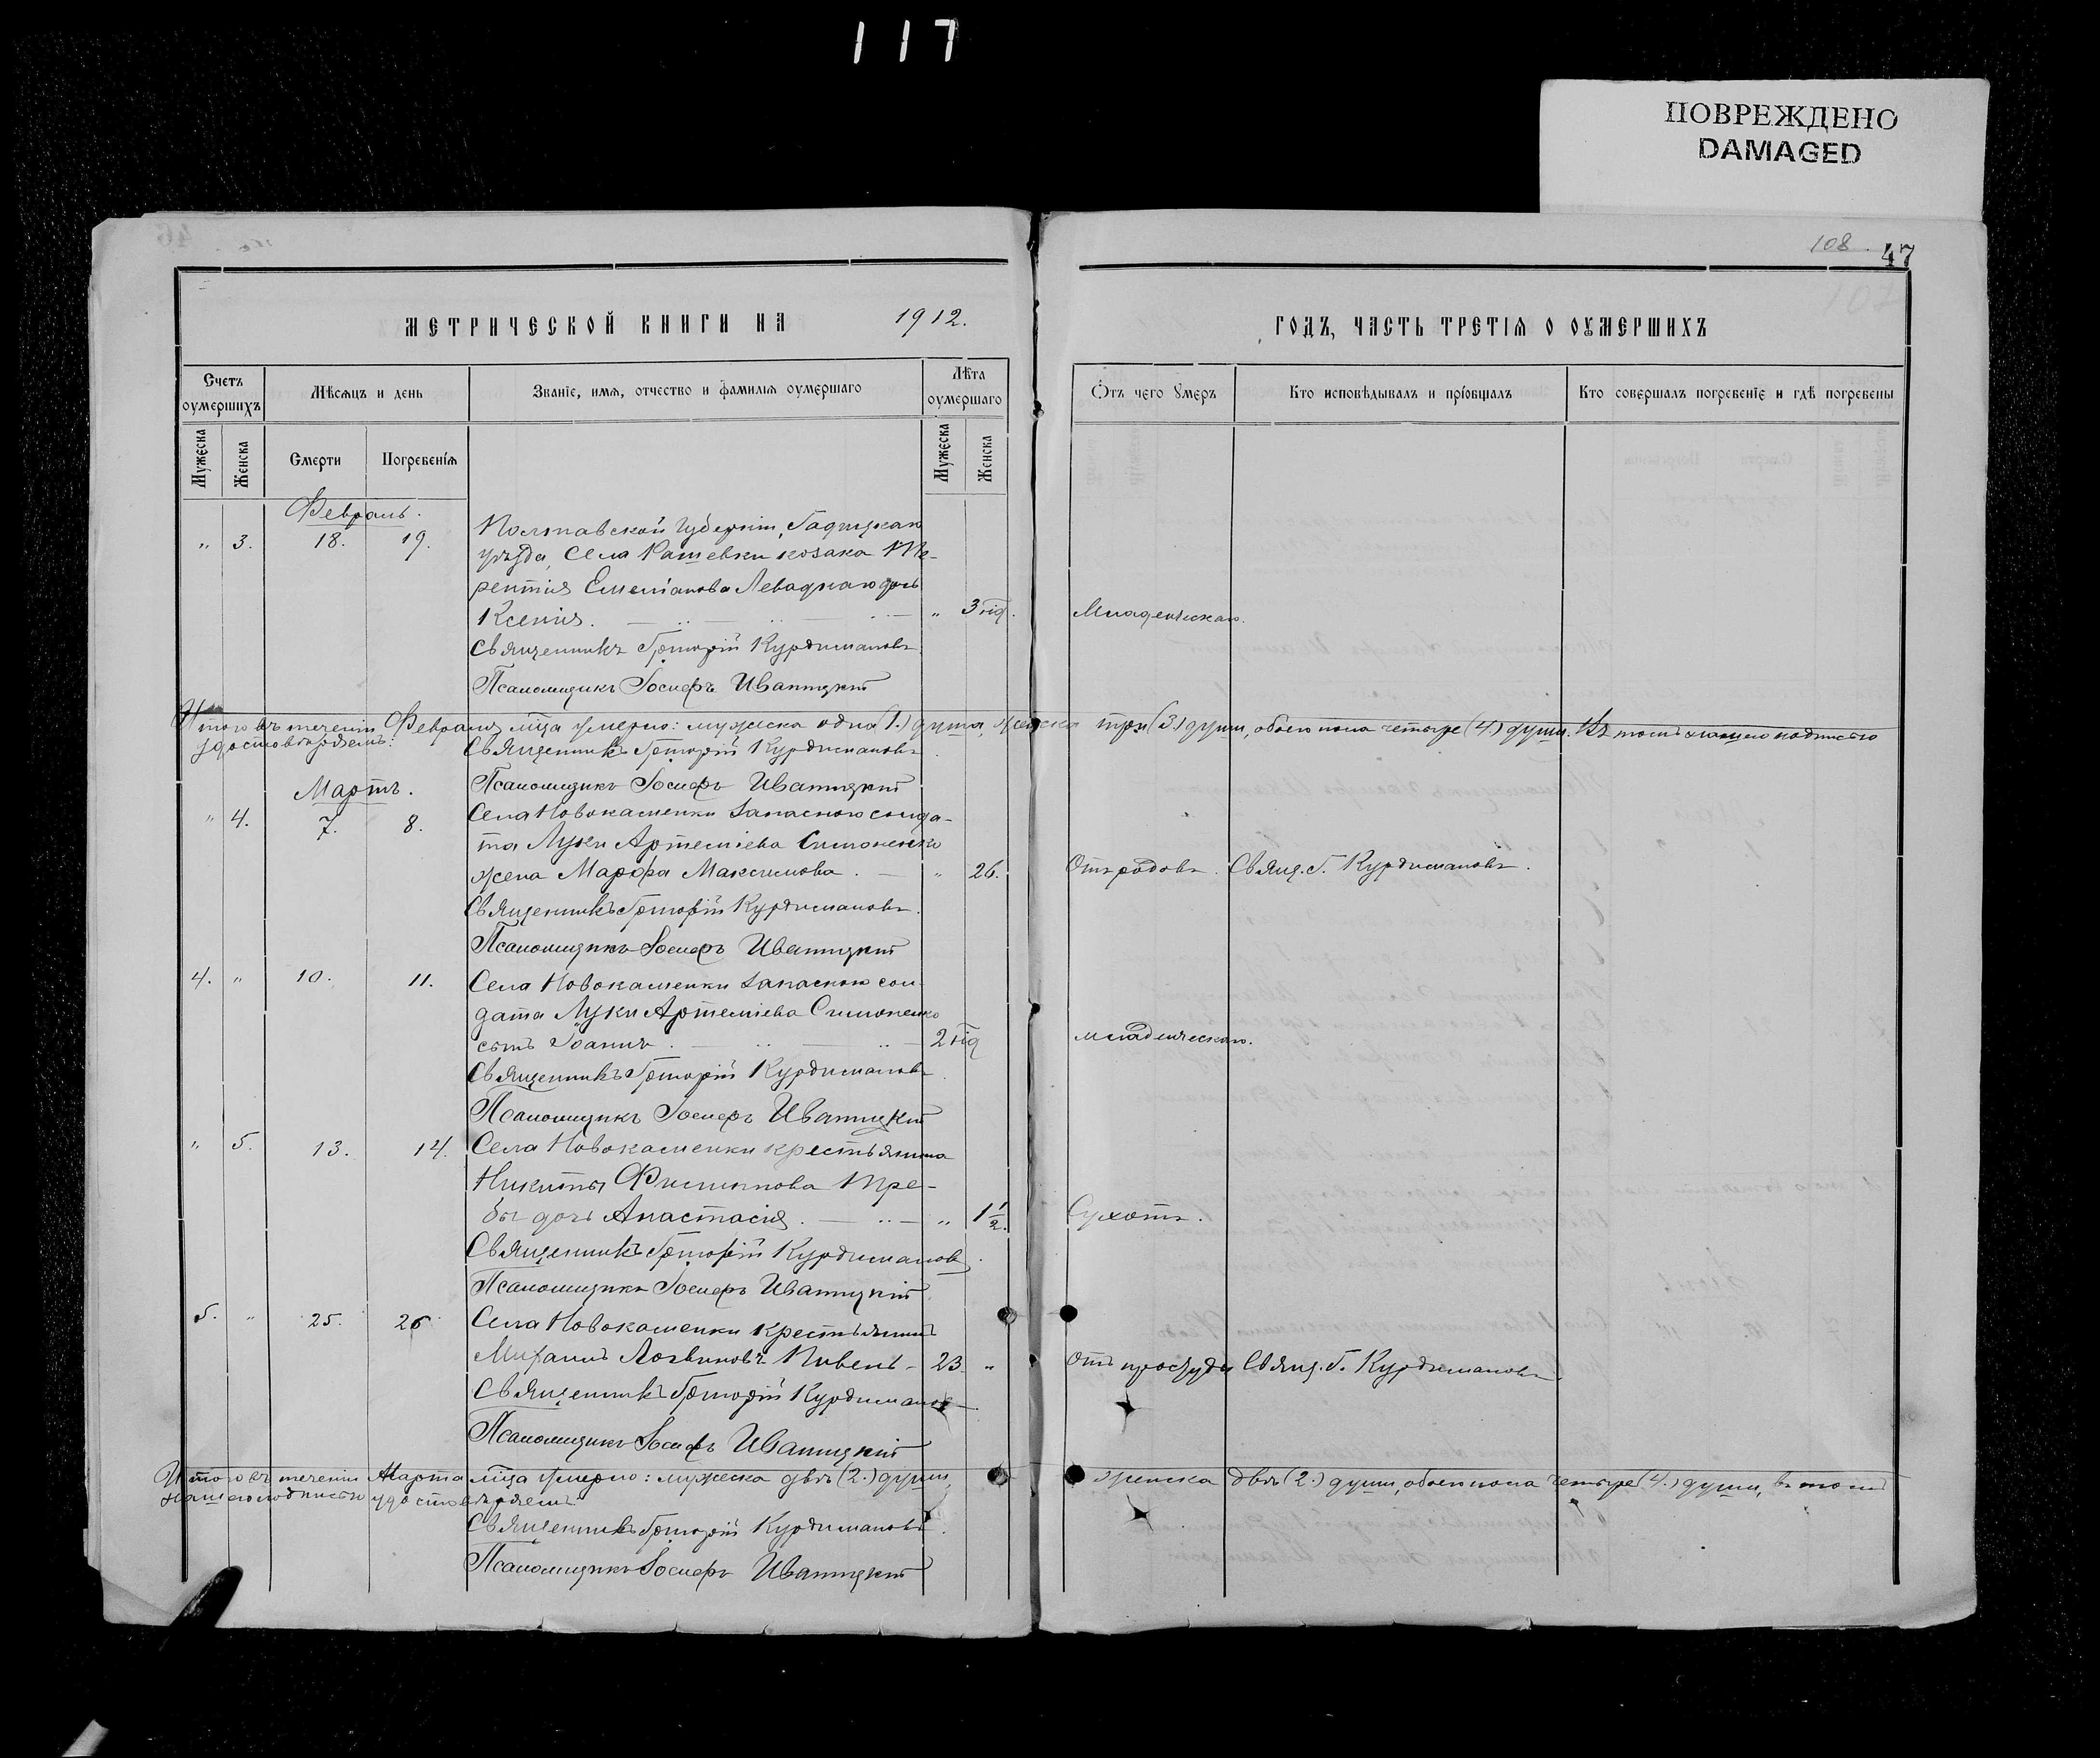 117
ПОВРЕЖДЕНО
DAMAGED
108
47
МЕТРИЧЕСКОЙ КНИГИ НА 1912. ГОДЪ, ЧАСТЬ ТРЕТІЯ О ОУМЕРШИХЪ
Счетъ оумершихъ
Мѣсяцъ и день
Званіе, имя, отчество и фамилія оумершаго
Лѣта оумершаго
Отъ чего умеръ
Кто исповѣдывалъ и пріобщалъ
Кто совершалъ погребеніе и гдѣ погребены
Мужеска
Женска
Смерти
Погребенія
Мужеска
Женска
Февраль.
" 3. 18. 19. Полтавской губерніи, Гадячскаго
уѣзда, села Рашевки козака Те-
рентія Емеліанова Леваднаго дочь
Ксенія. " 3 Младенческаго.
Священникъ Григорій Курдимановъ
Псаломщикъ Іосифъ Иваницкій
Итого въ теченіи Февраля мѣсца умерло: мужеска одна (1.) душа, женска три (3.) души, обоего пола четыре (4.) души. Въ томъ нашею подписью
удостовѣряемъ:
Священникъ Григорій Курдимановъ
Псаломщикъ Іосифъ Иваницкій
Мартъ.
" 4. 7. 8. Села Новокаменки запаснаго солда-
та Луки Артеміева Симоненко
жена Марфа Максимова. " 26. Отъ родовъ. Свящ. Г. Курдимановъ.
Священникъ Григорій Курдимановъ
Псаломщикъ Іосифъ Иваницкій
4. " 10. 11. Села Новокаменки запаснаго сол-
дата Луки Артеміева Симоненко
сынъ Іоаннъ. 2 младенческаго.
Священникъ Григорій Курдимановъ
Псаломщикъ Іосифъ Иваницкій
" 5. 13. 14. Села Новокаменки крестьянина
Никиты
бы дочь Анастасія. " 1 1/2. Сухотъ.
Священникъ Григорій Курдимановъ
Псаломщикъ Іосифъ Иваницкій
5. " 25. 26. Села Новокаменки крестьянинъ
Михаилъ Логвиновъ Пивень - 23. " Отъ простуды Свящ. Г. Курдимановъ.
Священникъ Григорій Курдимановъ
Псаломщикъ Іосифъ Иваницкій
Итого въ теченіи Марта мѣсца умерло: мужеска двѣ (2.) души, женска двѣ (2.) души, обоего пола четыре (4.) души, въ томъ
нашею подписью удостовѣряемъ:
Священникъ Григорій Курдимановъ.
Псаломщикъ Іосифъ Иваницкій